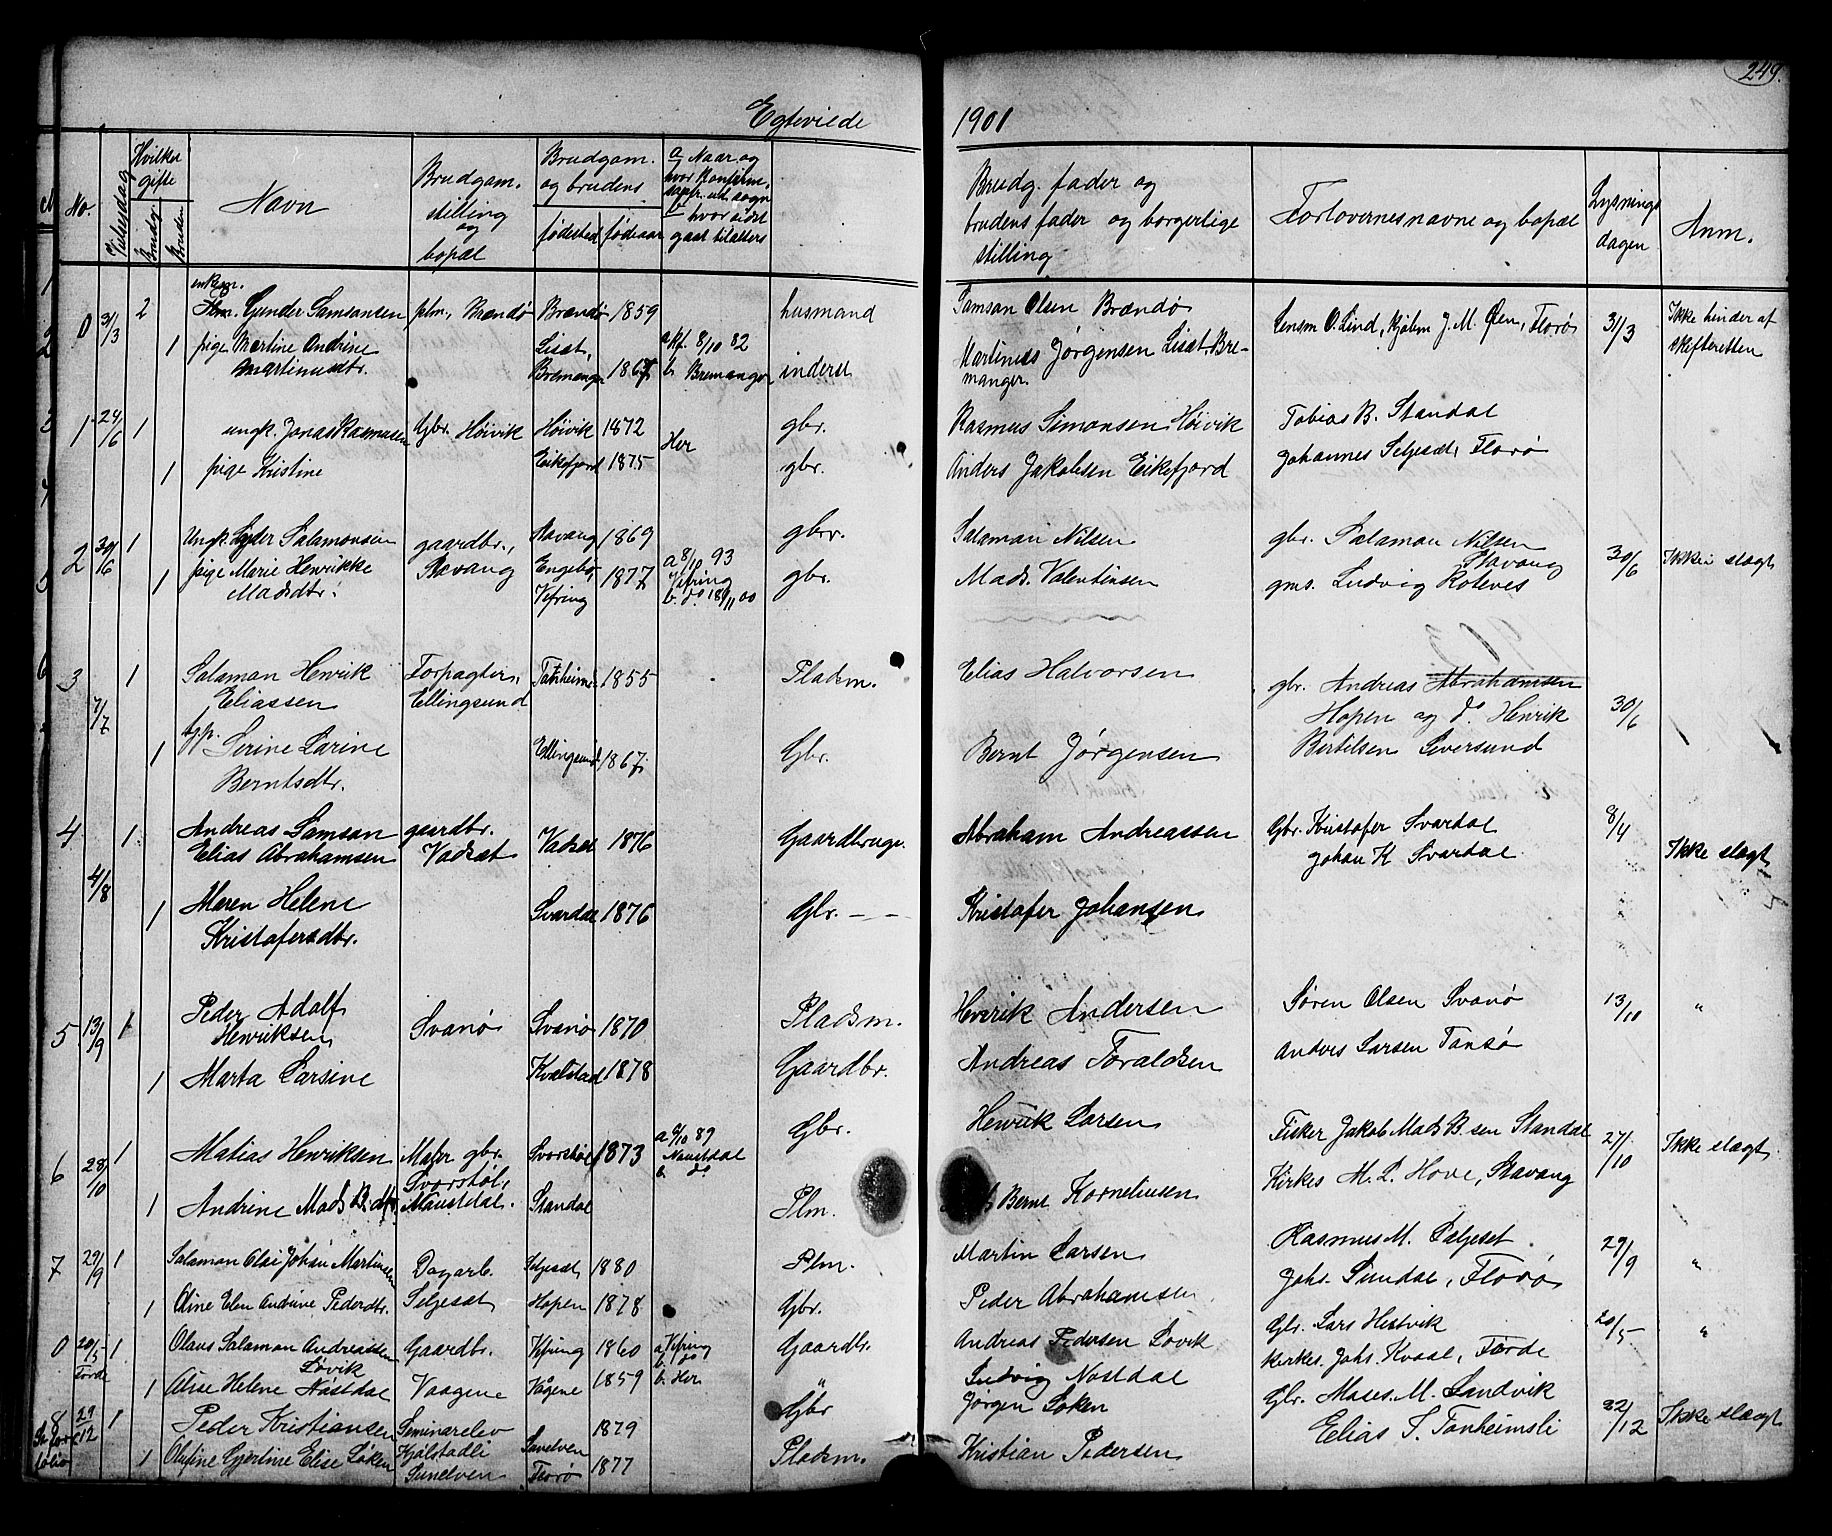 249.
Egteviede 1901
No.
Vielsesdag
Hvilket gifte
Brudg.
Bruden
Navn
Brudgom. stilling og bopæl
Brudgom. og brudens
fødested
fødeaar
a Naar og hvor Konfirm.
b hvor sidst gaat til alters
Brudg. fader og brudens fader og borgerlige stilling
Forlovernes navne og bopæl
Lysnings dagen
Anm.
enkem.
0 31/3 2 Plm. Gunder Samsonsen plm., Brændø Brændø 1859 husmand Samson Olsen Brændø Lensm O. Lind, Kjøbm J. M. Øen, Florø 31/3 Ikke hinder af skifteretten
1 pige Martine Andrine Martinusdtr. Liset, Bremanger 1867 a Kf. 8/10 82 b. Bremanger inderst Martinus Jørgensen Liset, Bremanger.
1 24/6 1 ungk. Jonas Rasmusen Gbr. Høivik Høivik 1872 Her gbr. Rasmus Simonsen Høivik Tobias B. Standal
1 pige Kristine Eikefjord 1875 gbr. Anders Jakobsen Eikefjord Johannes Seljeset, Florø
2 30/6 1 Ungk. Lyder Salamonsen gaardbr., Stavang Stavang 1869 gbr. Salamon Nilsen gbr. Salamon Nilsen Stavang 30/6 Ikke slægt
1 pige Marie Henrikke Madsdtr. Engebø, Vefring 1877 a 8/10 93 Vefring b. do 18/11 00 gbr. Mads Valentinsen gms. Ludvig Roteves
3 7/7 1 Salamon Henrik Eliassen Forpagter, Ellingsund Tonheim 1855 Pladsm. Elias Halvorsen gbr. Andreas Abrahamsen 30/6
Hopen og do Henrik
1 Serine Larine Berntsdtr. Ellingsund 1867 Gbr. Bernt Jørgensen Bertelsen Seversund
4 4/8 1 Andreas Samson Elias Abrahamsen gaardbr. Vadset Vadset 1876 Gaardbruge. Abraham Andreassen Gbr. Kristofer Svardal 8/4 Ikke slægt
Johan K Svardal
1 Maren Helene Kristofersdtr. Svardal 1876 Gbr. - - Kristofer Johansen
5 13/9 1 Peder Adolf Henriksen Svanø Svanø 1870 Pladsm. Henrik Andersen Søren Olsen Svanø 13/10 "
1 Marta Larsine Kvalstad 1878 Gaardbr. Andreas Toraldsen Anders Larsen Tansø
6 28/10 1 Matias Henriksen gbr. Svorstøl, Naustdal. Svorstøl 1873 a 6/10 89 Naustdal b. do Gbr. Henrik Larsen Fisker Jakob Mads B.sen Standal 27/10 Ikke slægt
1 Andrine Mads B.dtr. Standal Plm. Bernt Korneliusen Kirkes M. L. Hove, Stavang
7 29/9 1 Salamon Olai Johan Martinsen Dagarb. Seljeset Seljeset 1880 Plm. Martin Larsen Rasmus M. Seljeset 29/9 "
1 Oline Elen Andrine Pedersdtr. Hopen 1878 Gbr. Peder Abrahamsen Johs. Sundal, Florø
0 20/5 Førde 1 Olaus Salamon Andreassen Løvik Gaardbr. Vaagene Vefring 1860 a Vefring b. do Gaardbr. Andreas Pedersen Løvik Gbr. Lars Hestvik 20/5 "
1 Alise Helene Nøstdal Vågene 1859 b. Her " Ludvig Nostdal kirkes. Johs. Kvaal, Førde
8 29/12 1 Peder Kristiansen Seminarelev Kjølstadli Sunelven Sunelven 1879 Gbr Jørgen Løken Gbr. Moses M. Sandvik 22/12 Ikke slægt
1 Olufine Gjertine Elise Løken Florø 1877 Pladsm. Kristian Pedersen Elias S. Tonheimsli